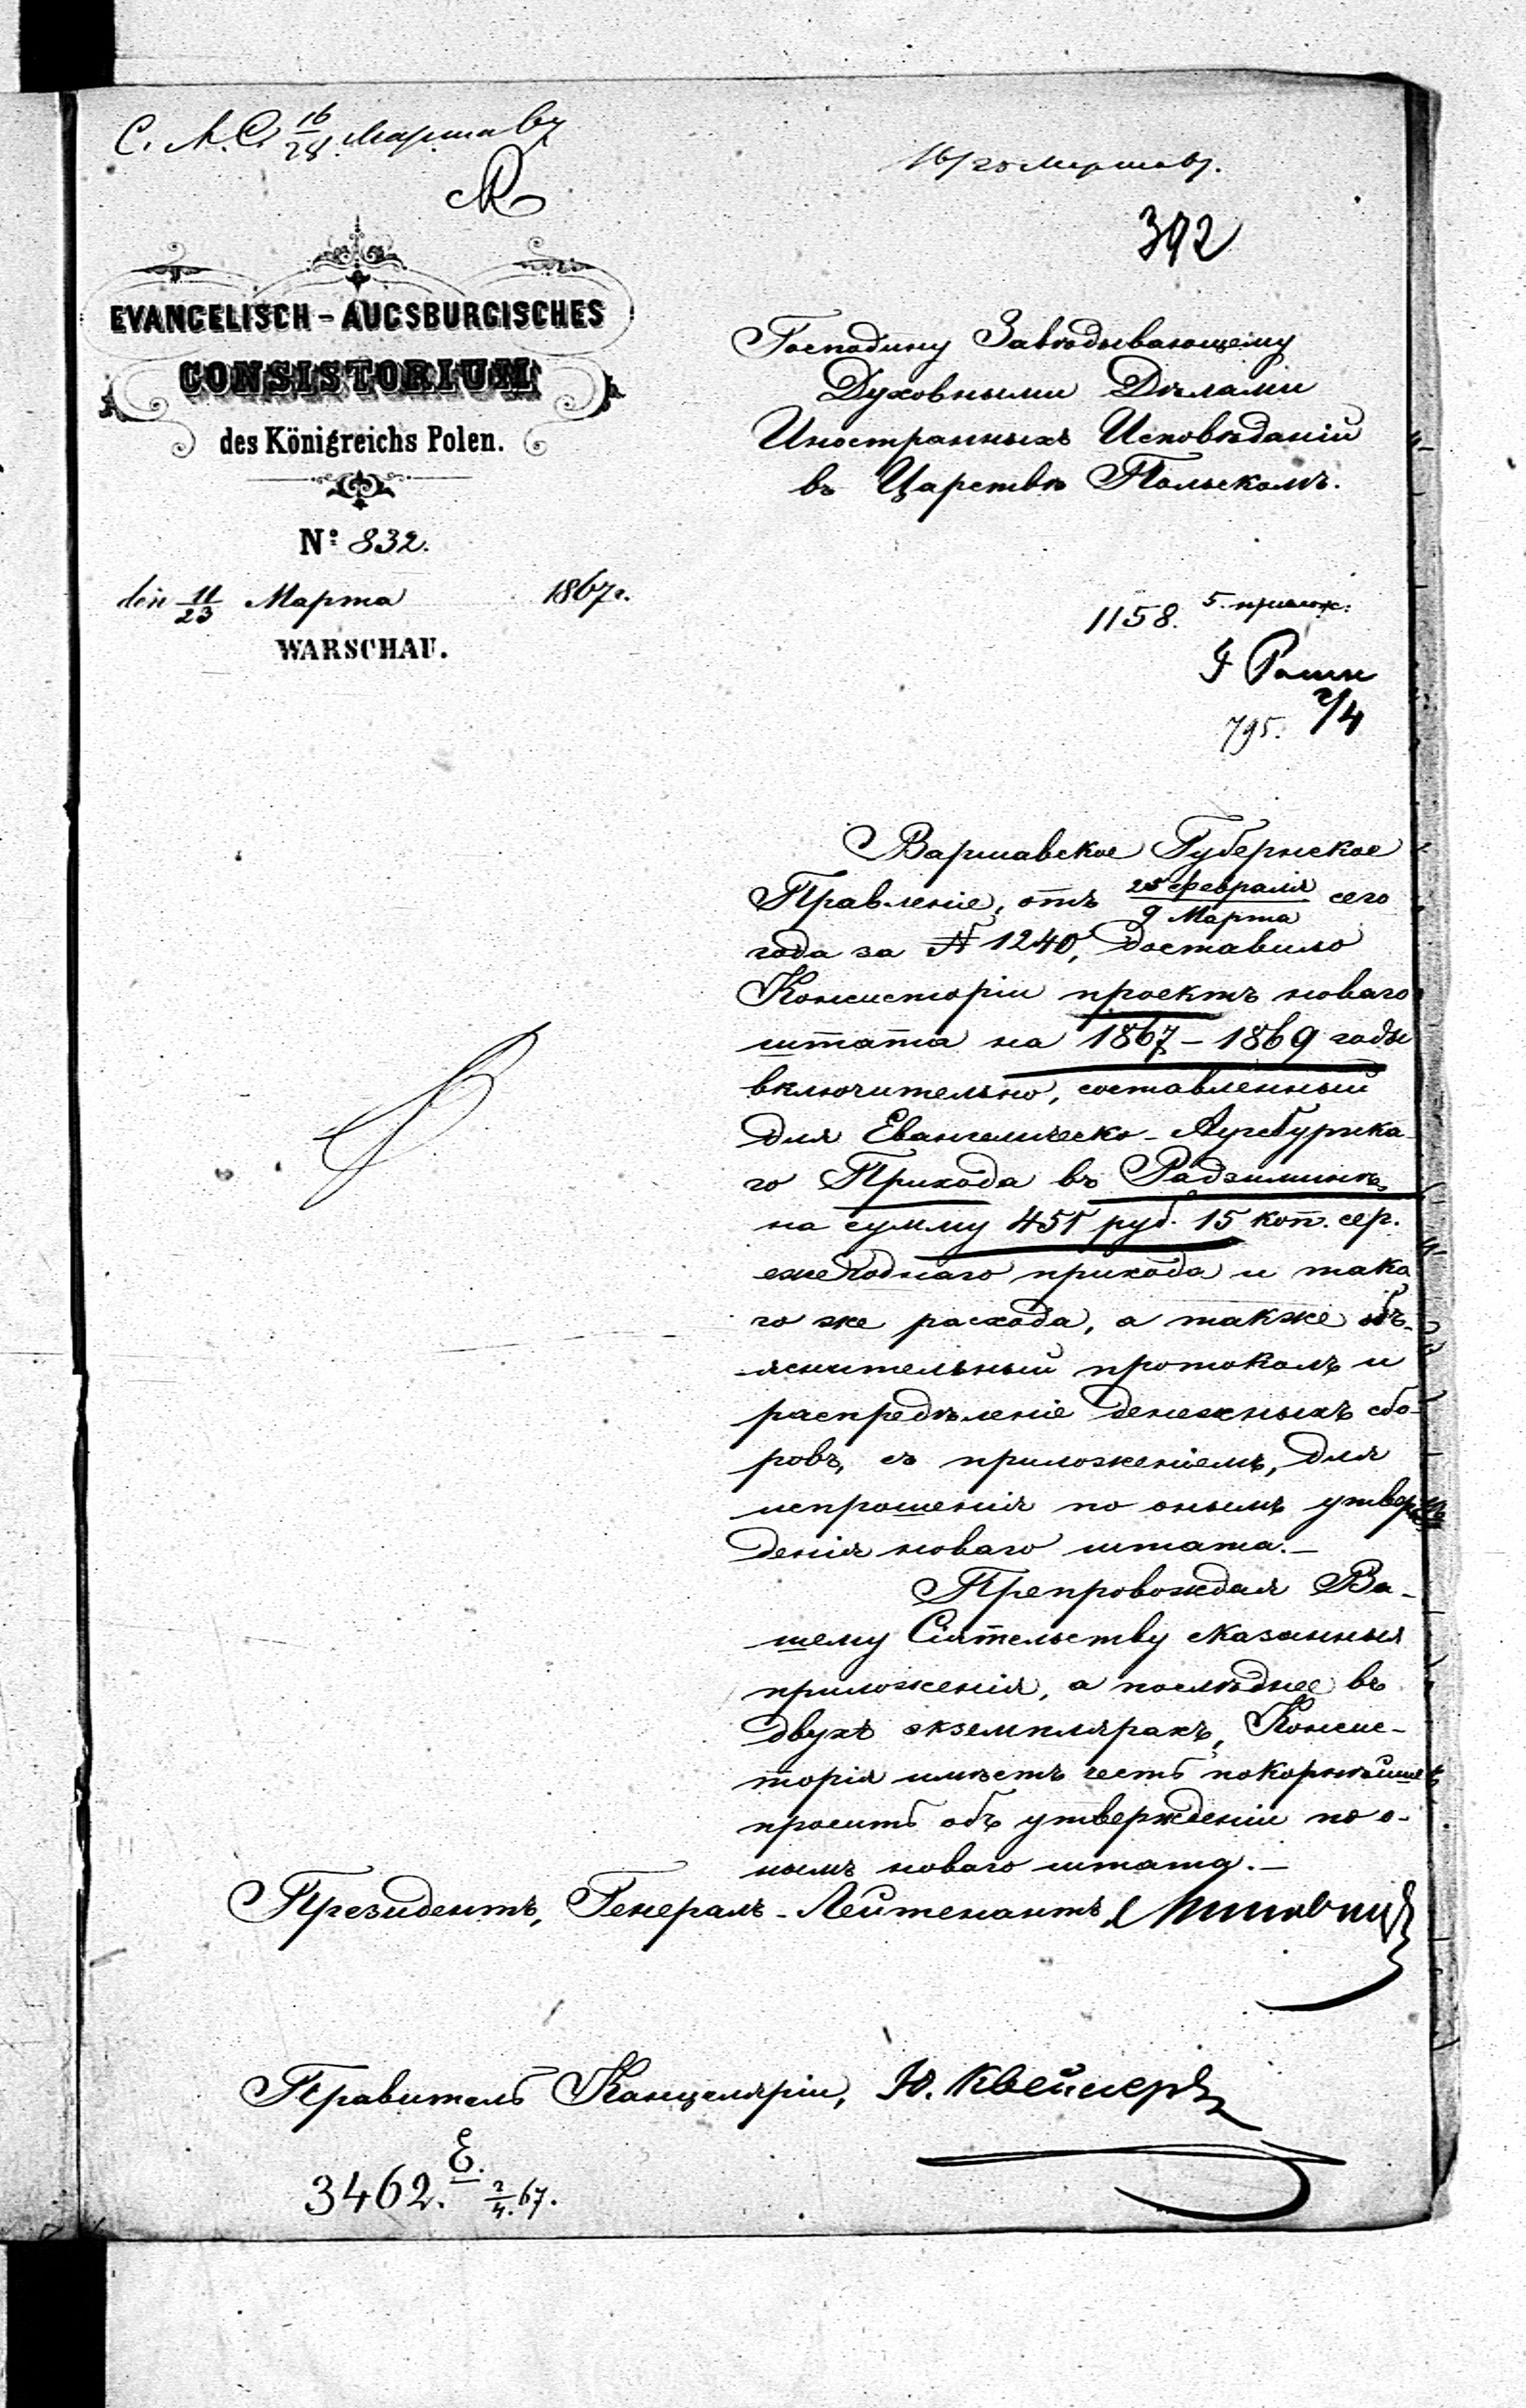 16/28 Марта 67
392
EVANGELISCH-AUGSBURGISCHES
CONSISTORIUM
des Königreichs Polen.
№ 832.
den 11/23 Марта 1867 г.
WARSCHAU.
Господину Завѣдывающему
Духовными Дѣлами
Иностранныхъ Исповѣданій
въ Царствѣ Польскомъ.
1158. 5. прилож:
795. 2/4
Варшавское Губернское
Правленіе, отъ 25 Февраля/9 Марта сего
года за № 1240, доставило
Консисторіи проектъ новаго
штата на 1867–1869 годы
включительно, составленный
для Евангелическо-Аугсбургска-
го Прихода въ Радзиминѣ,
на сумму 451 руб. 15 коп. сер.
ежегоднаго прихода и тако
го же расхода, а также объ-
яснительный протоколъ и
распредѣленіе денежныхъ сбо-
ровъ, съ приложеніемъ, для
испрошенія по онымъ утверж
денія новаго штата.—
Препровождая Ва-
шему Сіятельству сказанныя
приложенія, а послѣднее въ
двухъ экземплярахъ, Консис-
торія имѣетъ честь покорнѣйше
просить объ утвержденіи по о-
нымъ новаго штата.—
Президентъ, Генералъ-Лейтенантъ
Правитель Канцеляріи,
3462. E. 2/4. 67.